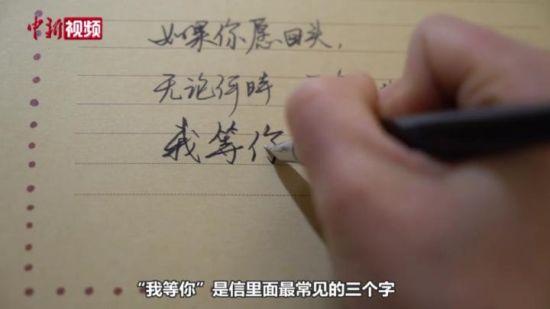 中新视频
如果你愿回头,
无论何时
我等你
“我等你”是信里面最常见的三个字